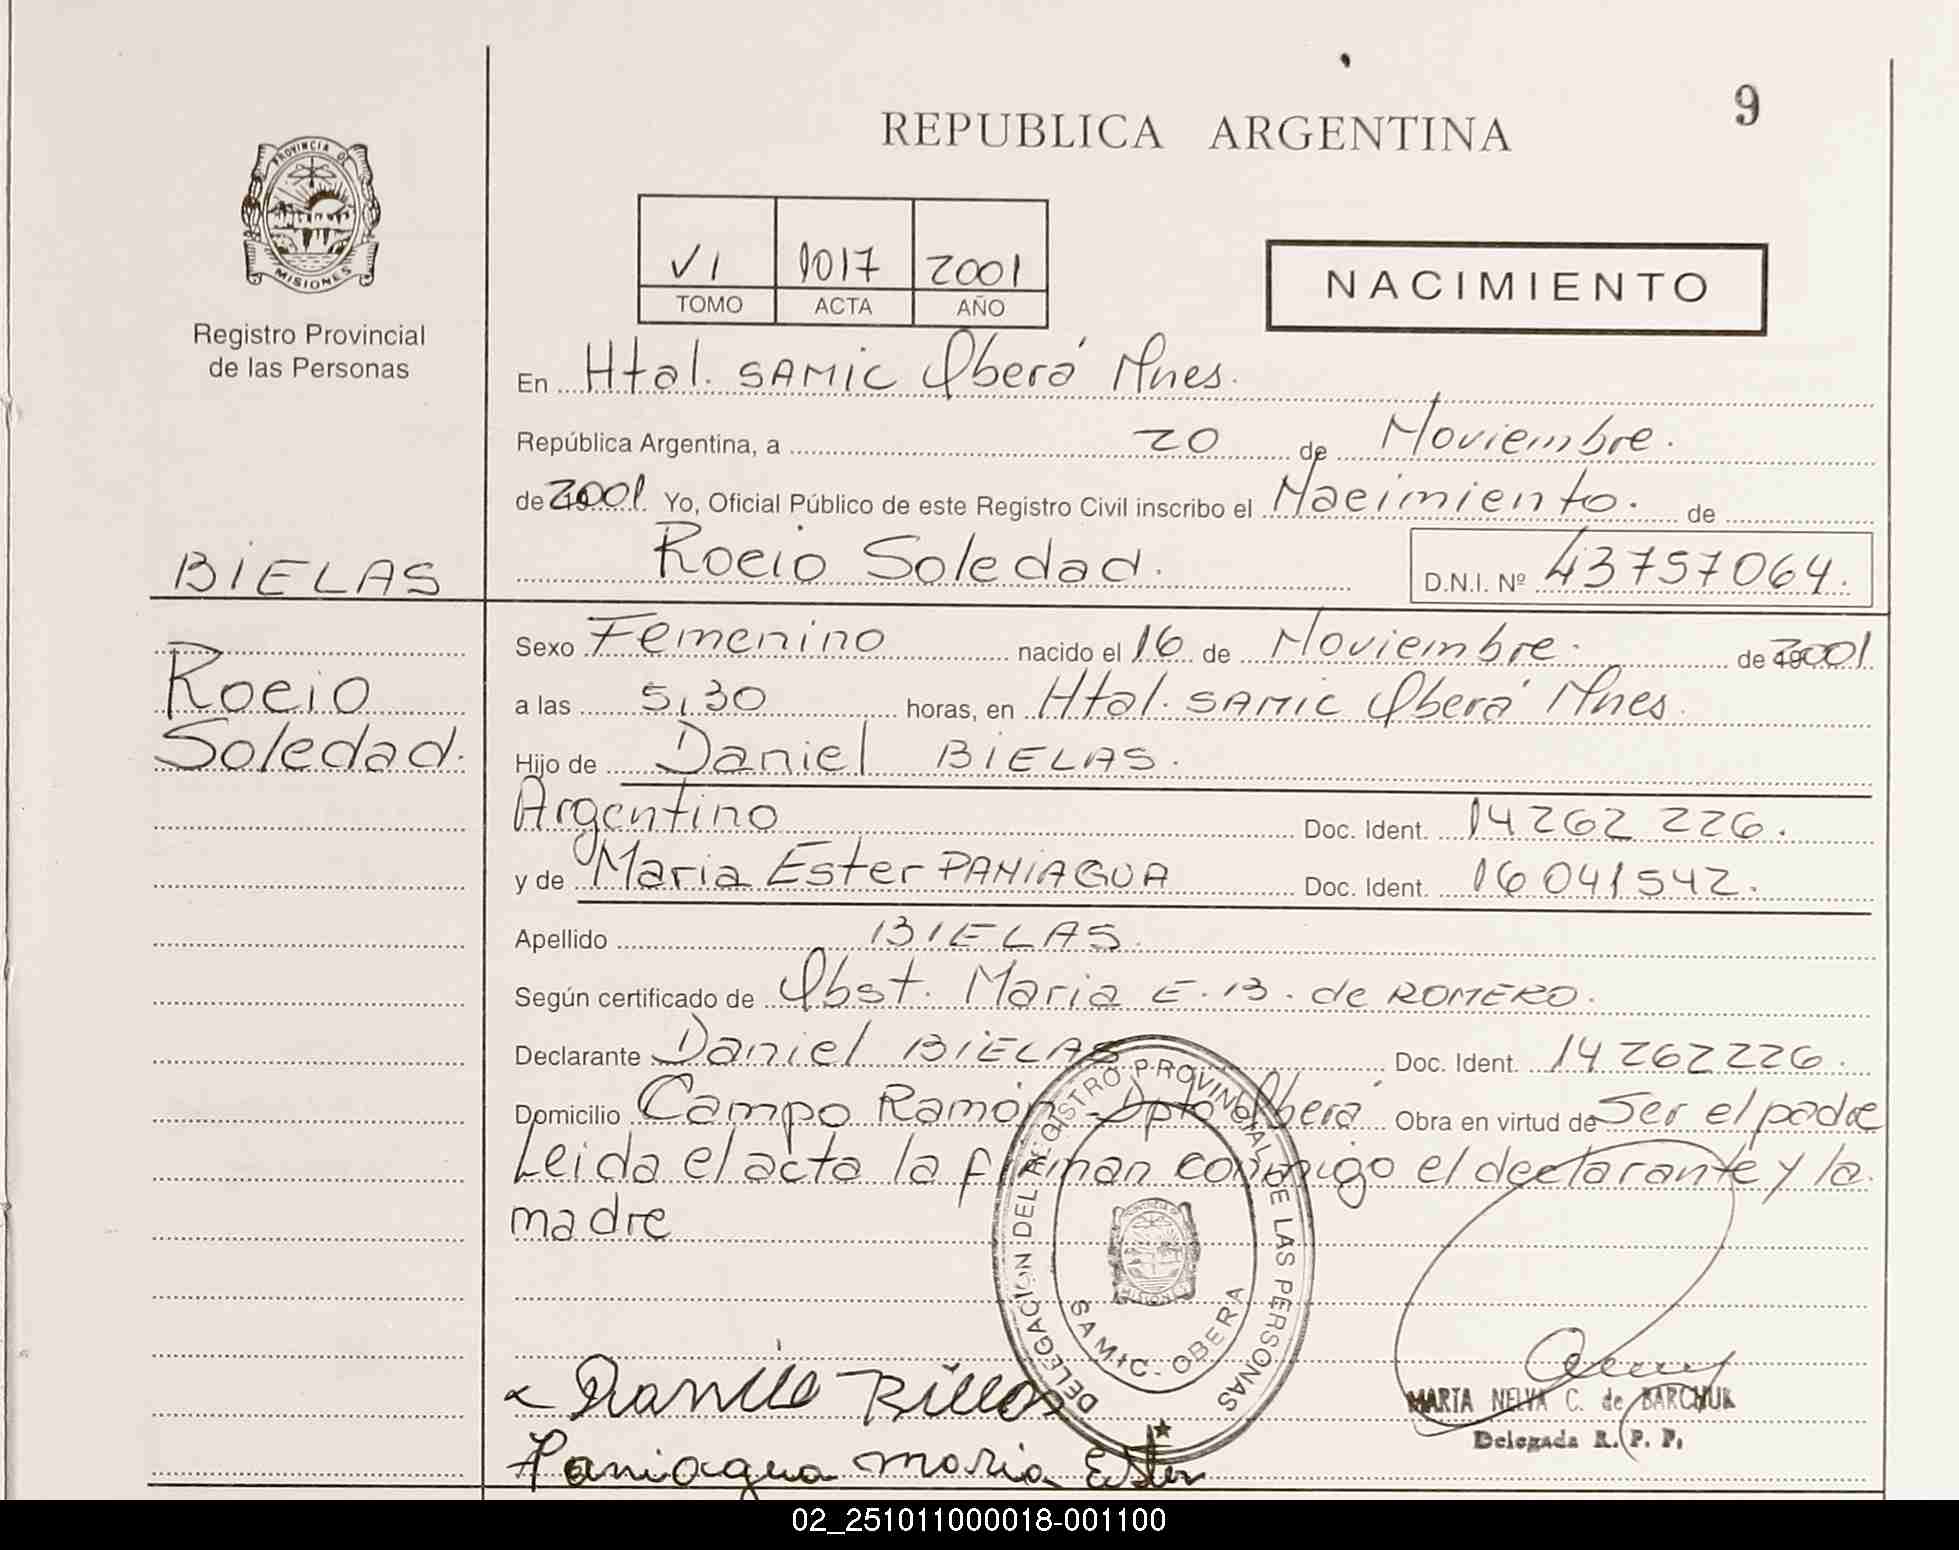 9
REPUBLICA ARGENTINA
PROVINCIA DE
MISIONES
Registro Provincial
de las Personas
VI 1017 2001
TOMO ACTA AÑO
NACIMIENTO
En Htal. SAMIC Oberá Mnes.
República Argentina, a 20 de Noviembre.
de 2001 Yo, Oficial Público de este Registro Civil inscribo el Nacimiento. de
BIELAS
Rocio Soledad. D.N.I. Nº 43757064.
Sexo Femenino nacido el 16 de Noviembre. de 2001
Rocio
Soledad.
a las 5,30 horas, en Htal. SAMIC Oberá Mnes.
Hijo de Daniel BIELAS.
Argentino Doc. Ident. 14262226.
y de Maria Ester PANIAGUA Doc. Ident. 16041542.
Apellido BIELAS.
Según certificado de Obst. Maria E. B. de ROMERO.
Declarante Daniel BIELAS Doc. Ident. 14262226.
Domicilio Campo Ramón - Dpto Oberá Obra en virtud de Ser el padre
Leida el acta la firman conmigo el declarante y la
madre
DELEGACION DEL REGISTRO PROVINCIAL DE LAS PERSONAS
SAMIC - OBERA
MARIA NELVA C. de BARCHUK
Delegada R. P. P.
Paniagua Maria Ester
02_251011000018-001100